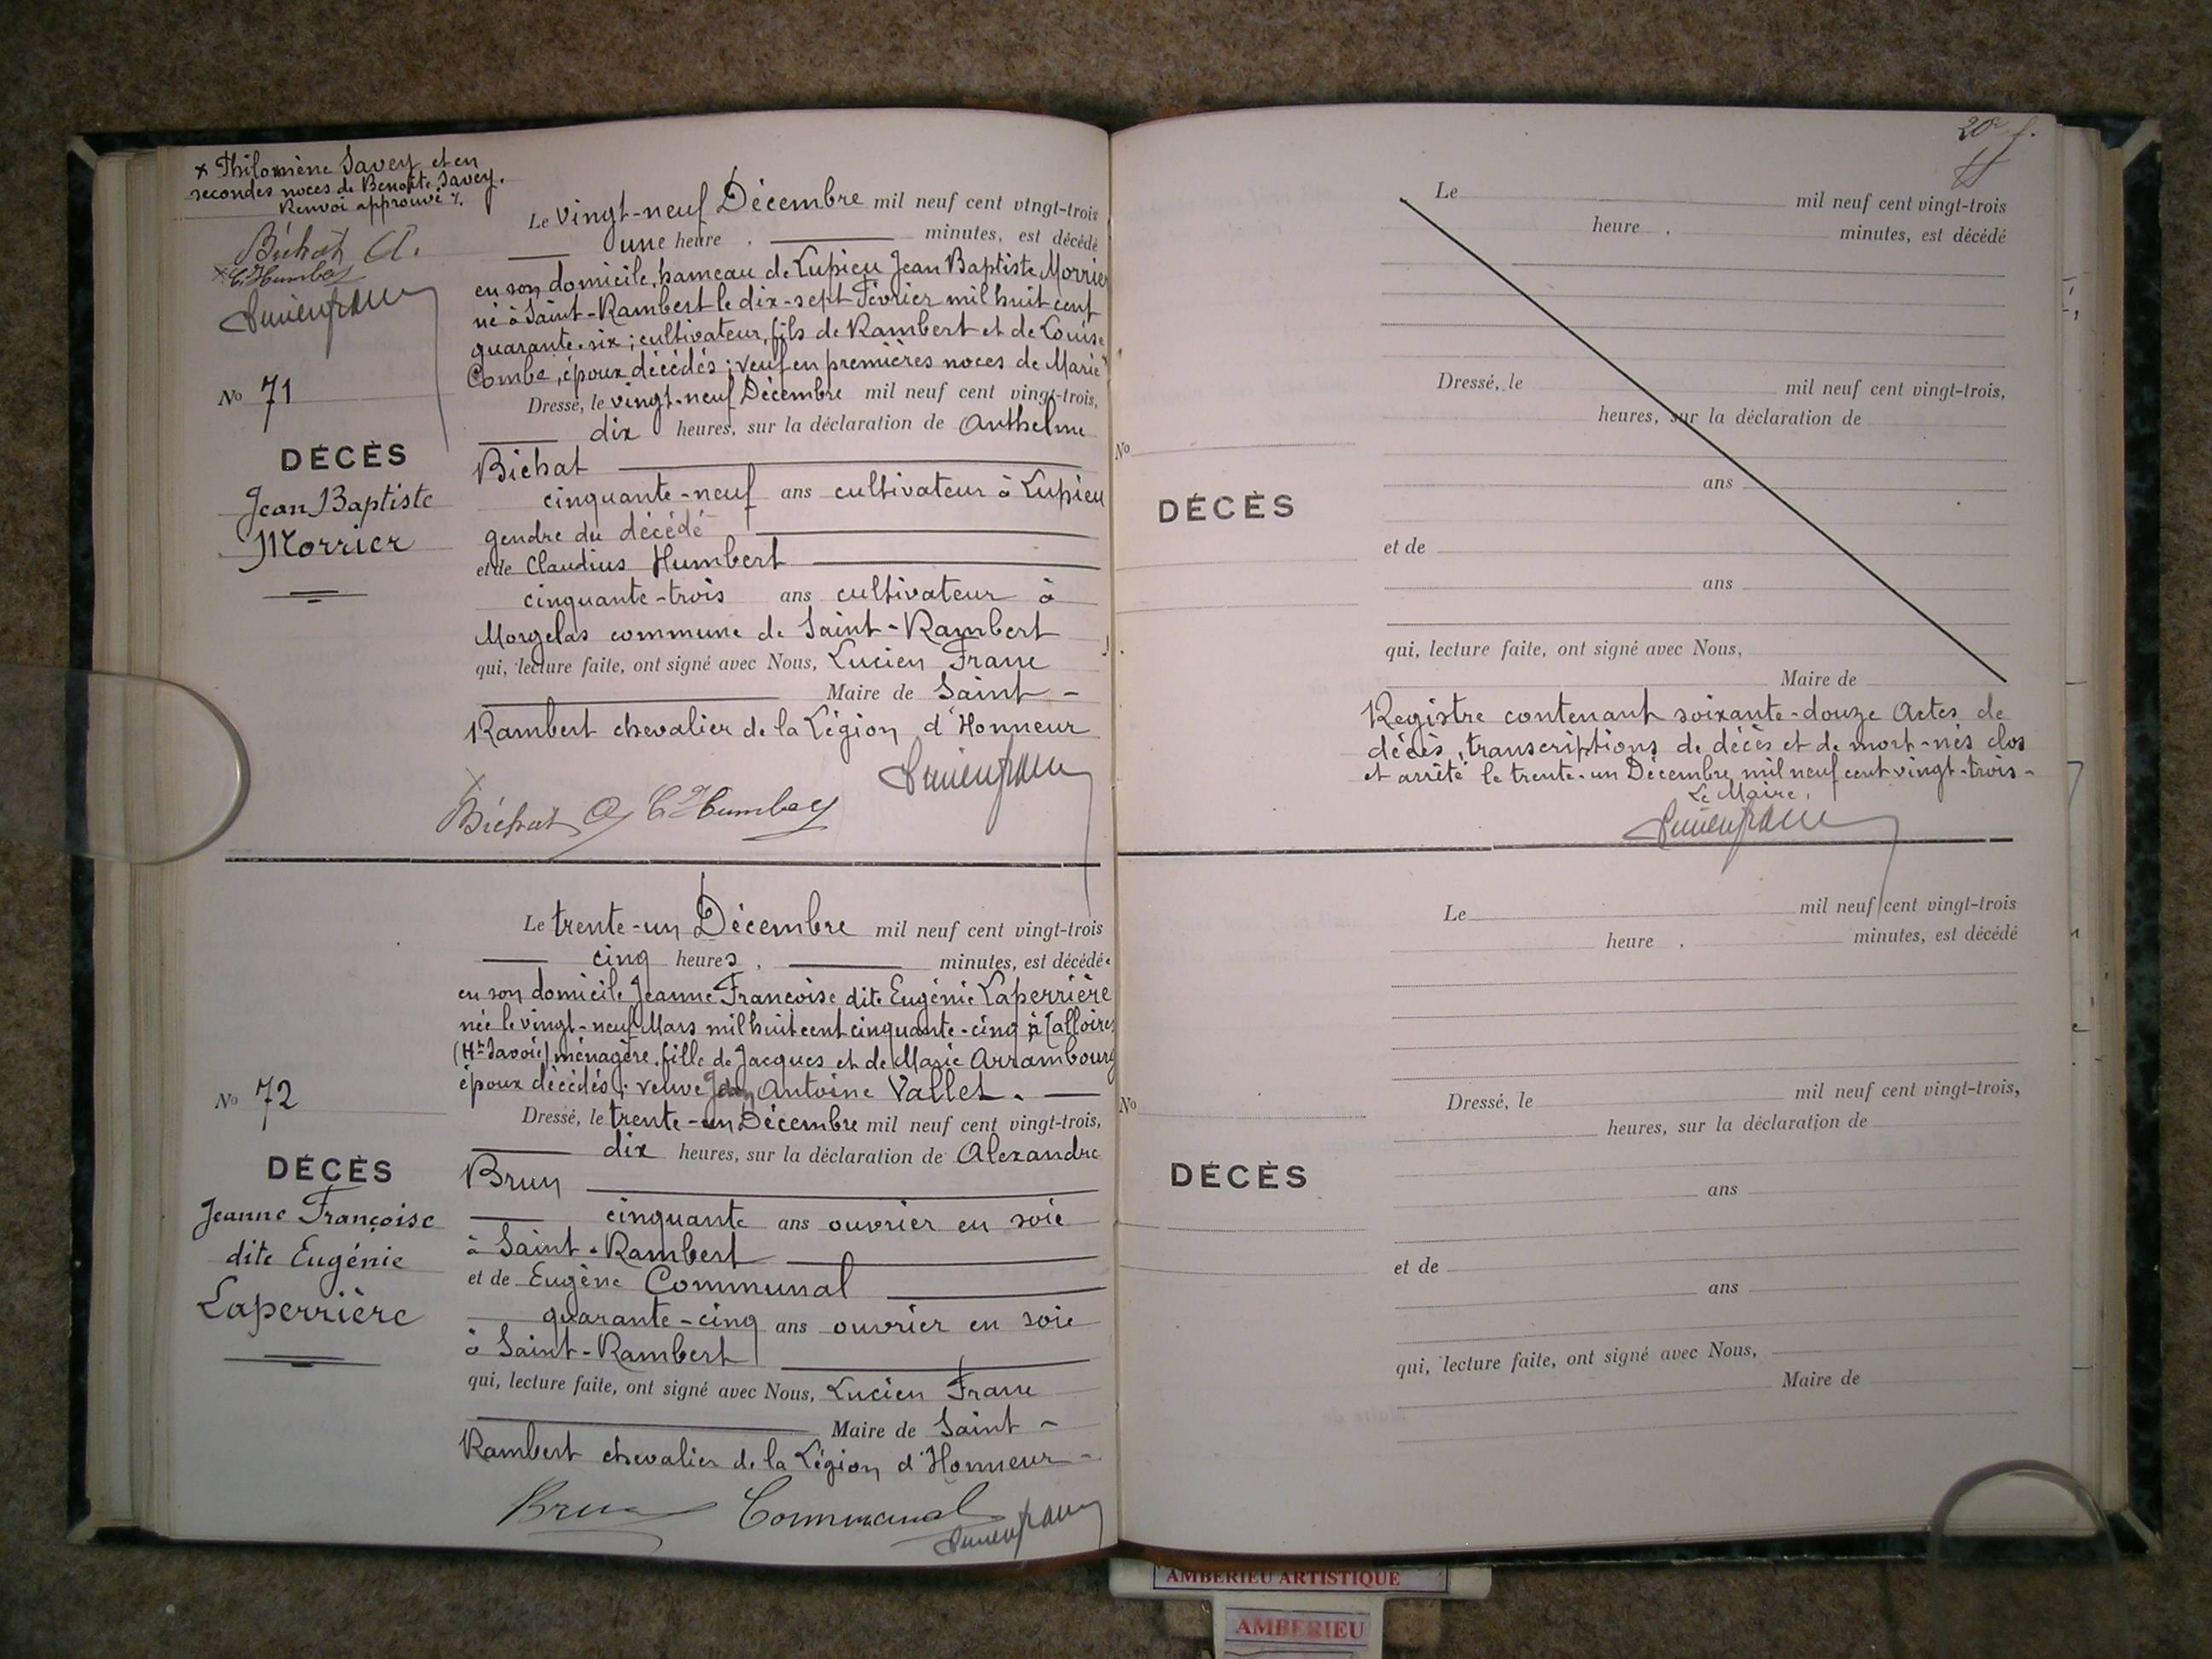 x Philomène Savey et en
secondes noces de Benoîte Savey.
Renvoi approuvé %.
Bichat A.
x C. Humbert
Lucien Franc
No 71
DÉCÈS
Jean Baptiste
Morrier
Le vingt-neuf Décembre mil neuf cent vingt-trois
une heure , minutes, est décédé
en son domicile, hameau de Lupieu Jean Baptiste Morrier
né à Saint-Rambert le dix-sept Février mil huit cent
quarante-six ; cultivateur, fils de Rambert et de Louise
Combe, époux décédés ; veuf en premières noces de Marie x
Dressé, le vingt-neuf Décembre mil neuf cent vingt-trois,
dix heures, sur la déclaration de Anthelme
Bichat
cinquante-neuf ans cultivateur à Lupieu
gendre du décédé
et de Claudius Humbert
cinquante-trois ans cultivateur à
Morgelas commune de Saint-Rambert
qui, lecture faite, ont signé avec Nous, Lucien Franc
Maire de Saint-
Rambert chevalier de la Légion d'Honneur
x
Bichat A C Humbert
Lucien Franc
No 72
DÉCÈS
Jeanne Françoise
dite Eugénie
Laperrière
Le trente-un Décembre mil neuf cent vingt-trois
cinq heures , minutes, est décédée
en son domicile Jeanne Françoise dite Eugénie Laperrière
née le vingt-neuf Mars mil huit cent cinquante-cinq à Talloires
(Hte Savoie) ménagère, fille de Jacques et de Marie Arrambourg
époux décédés ; veuve Jean Antoine Vallet.
Dressé, le trente-un Décembre mil neuf cent vingt-trois,
dix heures, sur la déclaration de Alexandre
Brun
cinquante ans ouvrier en soie
à Saint-Rambert
et de Eugène Communal
quarante-cinq ans ouvrier en soie
à Saint-Rambert
qui, lecture faite, ont signé avec Nous, Lucien Franc
Maire de Saint-
Rambert chevalier de la Légion d'Honneur-
Brun Communal
Lucien Franc
20e f.
Le mil neuf cent vingt-trois
heure , minutes, est décédé
Dressé, le mil neuf cent vingt-trois,
heures, sur la déclaration de
No
ans
DÉCÈS
et de
ans
qui, lecture faite, ont signé avec Nous,
Maire de
Registre contenant soixante-douze Actes de
décès, transcriptions de décès et de mort-nés clos
et arrêté le trente-un Décembre mil neuf cent vingt-trois-
Le Maire,
Lucien Franc
Le mil neuf cent vingt-trois
heure , minutes, est décédé
No
Dressé, le mil neuf cent vingt-trois,
heures, sur la déclaration de
DÉCÈS
ans
et de
ans
qui, lecture faite, ont signé avec Nous,
Maire de
AMBERIEU ARTISTIQUE
AMBERIEU